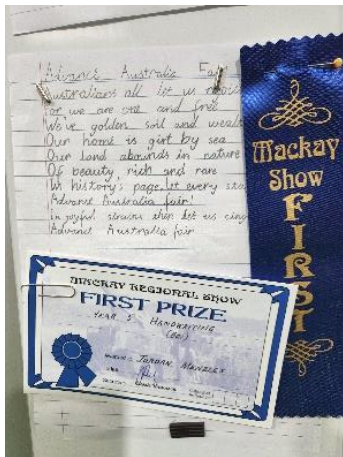 Advance Australia Fai
Australians all let us
for we are one and free
We've golden soil and wealt
Our home is girt by sea
Our land abounds in nature
Of beauty, rich and rare
In history's page, let every sta
Advance Australia fair!
In joyful strains then let us sing
Advance Australia fair
Mackay
Show
FIRST
MACKAY REGIONAL SHOW
FIRST PRIZE
YEAR 5 HANDWRITING
JORDAN